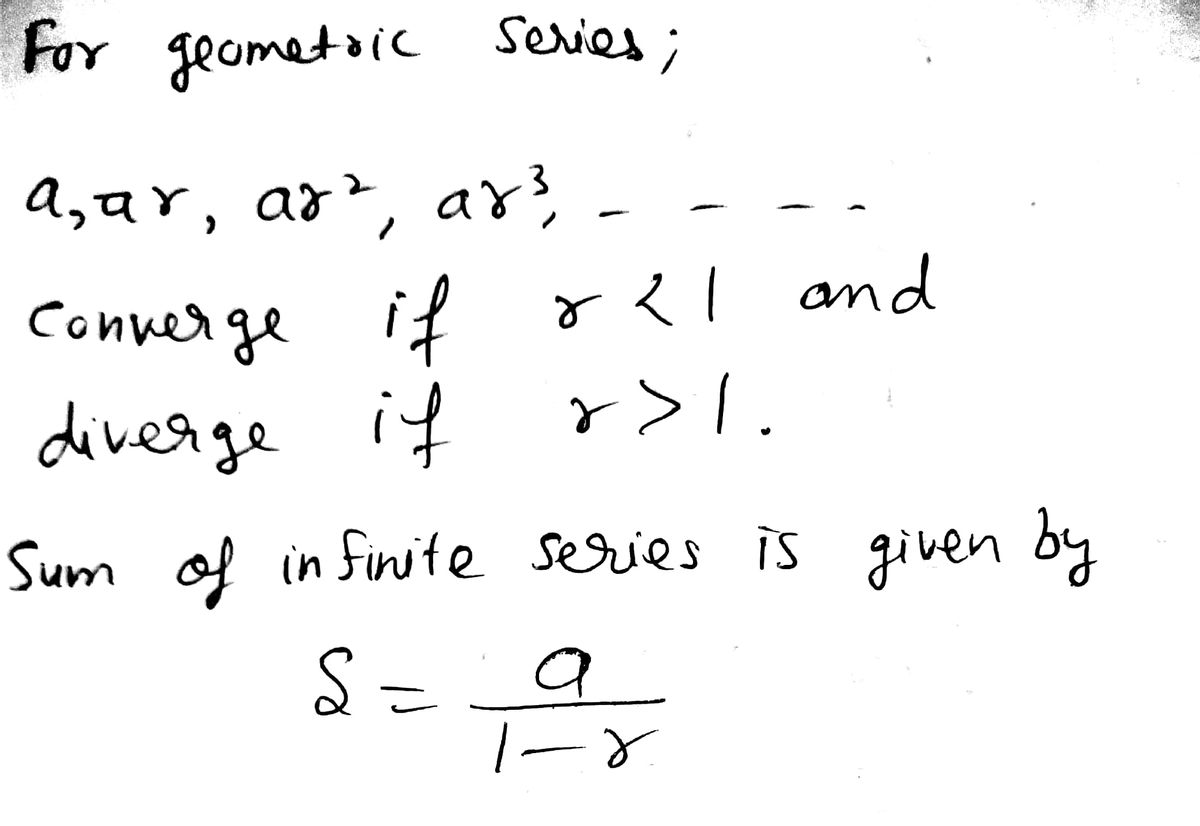 For geometric series;
a, ar, ar², ar³, - - - -
Converge if r < 1 and
diverge if r > 1.
Sum of infinite series is given by
S = a
1 - r